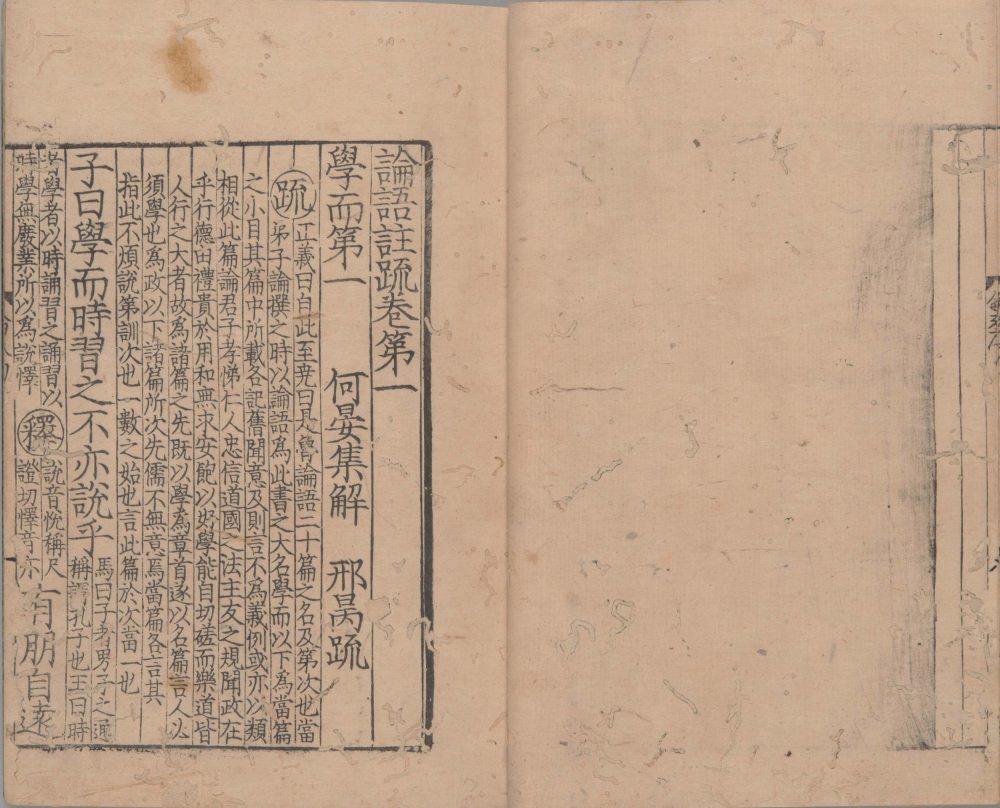 論語註疏卷第一
學而第一 何晏集解 邢昺疏
疏 正義曰自此至堯曰是魯論語二十篇之名及第次也當
弟子論撰之時以論語爲此書之大名學而以下爲當篇
之小目其篇中所載各記舊聞意及則言不爲義例或亦以類
相從此篇論君子孝悌仁人忠信道國之法主友之規聞政在
乎行德由禮貴於用和無求安飽以好學能自切磋而樂道皆
人行之大者故爲諸篇之先既以學爲章首遂以名篇言人必
須學也爲政以下諸篇所次先儒不無意焉當篇各言其
指此不煩說第訓次也一數之始也言此篇於次當一也
子曰學而時習之不亦說乎 馬曰子者男子之通
稱謂孔子也王曰時
者學者以時誦習之誦習以
時學無廢業所以爲說懌 釋 說音悅稱尺
證切懌音亦 有朋自遠